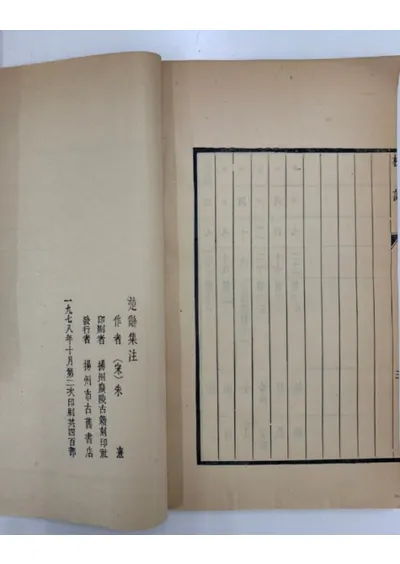 楚辭集注
作者 (宋) 朱熹
印刷者 揚州廣陵古籍刻印社
發行者 揚州市古舊書店
一九七八年十月第二次印刷共四百部
三